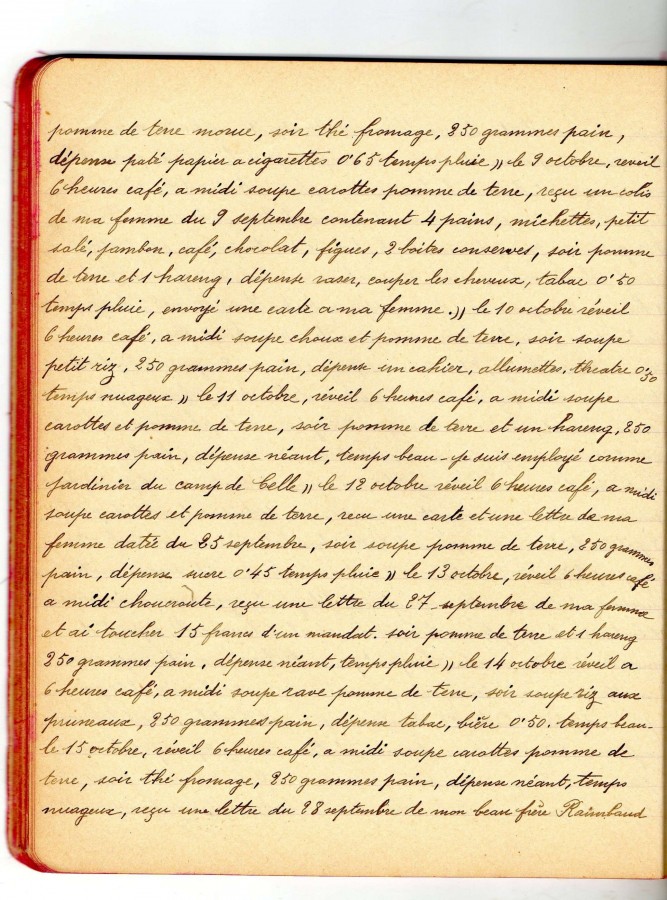 pomme de terre morue, soir thé fromage, 250 grammes pain,
dépense paté papier a cigarettes 0f65 temps pluie » le 9 octobre, reveil
6 heures café, a midi soupe carottes pomme de terre, reçu un colis
de ma femme du 9 septembre contenant 4 pains, michettes, petit
salé, jambon, café, chocolat, figues, 2 boites conserves, soir pomme
de terre et 1 hareng, dépense raser, couper les cheveux, tabac 0f50
temps pluie, envoyé une carte a ma femme. » le 10 octobre réveil
6 heures café, a midi soupe choux et pomme de terre, soir soupe
petit riz, 250 grammes pain, dépense un cahier, allumettes, theatre 0f50
temps nuageux » le 11 octobre, réveil 6 heures café, a midi soupe
carottes et pomme de terre, soir pomme de terre et un hareng, 250
grammes pain, dépense néant, temps beau - je suis employé comme
jardinier du camp de Celle » le 12 octobre réveil 6 heures café, a midi
soupe carottes et pomme de terre, recu une carte et une lettre de ma
femme datée du 25 septembre, soir soupe pomme de terre, 250 grammes
pain, dépense sucre 0f45 temps pluie » le 13 octobre, réveil 6 heures café
a midi choucroute, reçu une lettre du 27 septembre de ma femme
et ai toucher 15 francs d'un mandat. soir pomme de terre et 1 hareng
250 grammes pain, dépense néant, temps pluie » le 14 octobre réveil a
6 heures café, a midi soupe rave pomme de terre, soir soupe riz aux
pruneaux, 250 grammes pain, dépense tabac, bière 0f50. temps beau -
le 15 octobre, réveil 6 heures café, a midi soupe carottes pomme de
terre, soir thé fromage, 250 grammes pain, dépense néant, temps
nuageux, reçu une lettre du 28 septembre de mon beau frère Raimbaud